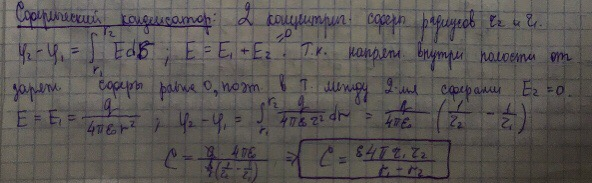 Сферический конденсатор: 2 концентрич. сферы радиусов r₂ и r₁.
φ₂ - φ₁ = ∫_{r₁}^{r₂} E dr ; E = E₁ + E₂ =0 . Т.к. напряж внутри полости от
заряж сферы равна 0, поэт. в т. между 2-мя сферами E₂ = 0.
E = E₁ = q / 4πε₀r² ; φ₂ - φ₁ = ∫_{r₁}^{r₂} q / 4πε₀r² dr = q / 4πε₀ (1/r₂ - 1/r₁)
C = q 4πε₀ / q(1/r₂ - 1/r₁) ⇒ C = ε4πr₁r₂ / r₁ - r₂